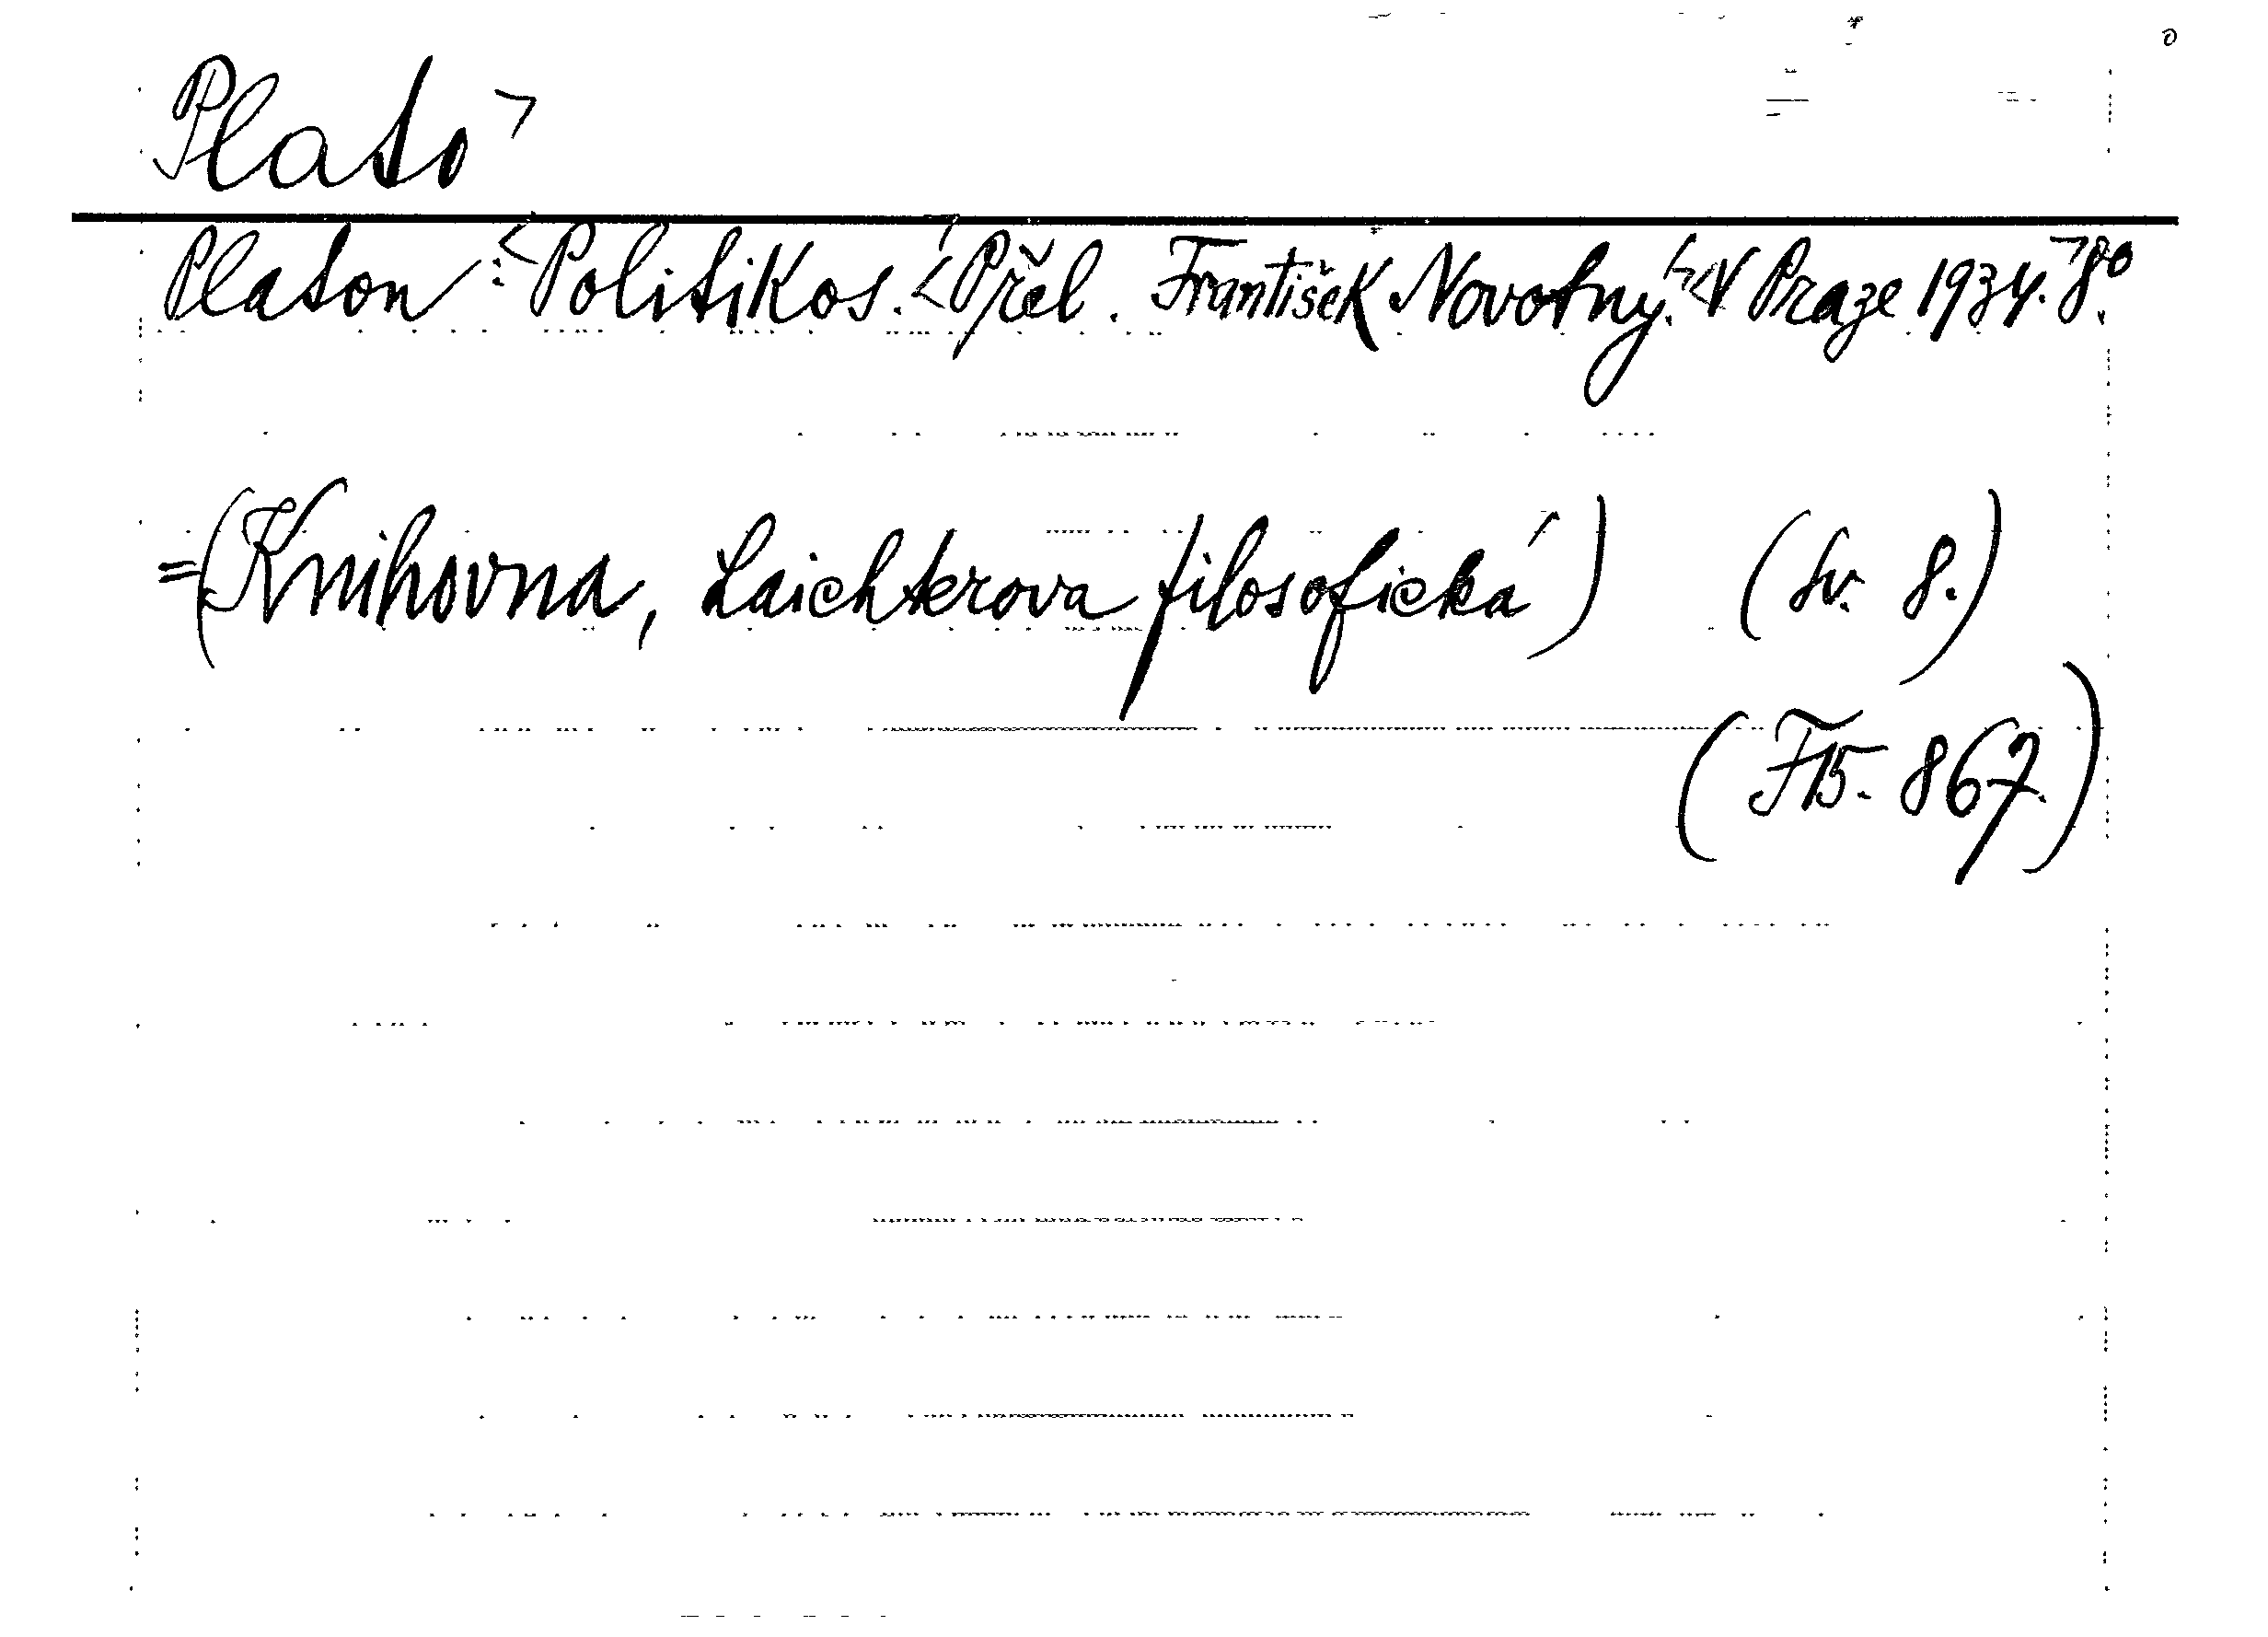 Plato
Platon: Politikos. Přel. František Novotný. V Praze 1934. 8°.
=(Knihovna, Laichterova filosofická) (Sv. 8.)
(F15. 867.)